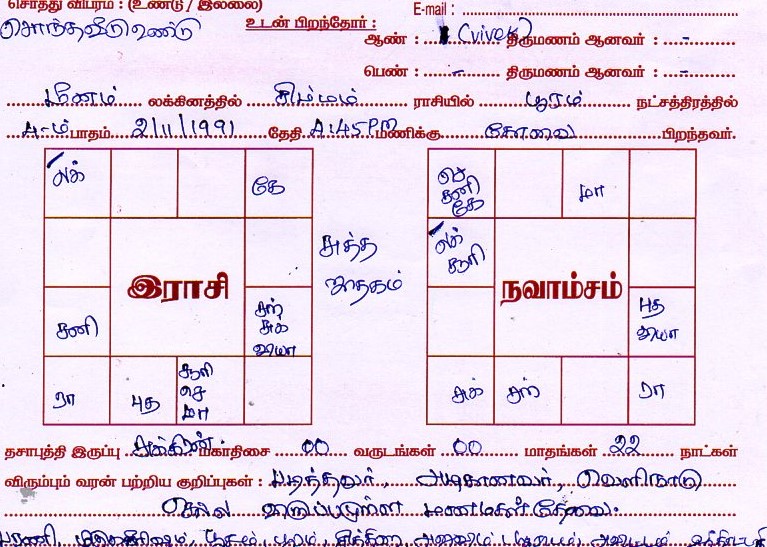 சொத்து விபரம் : (உண்டு / இல்லை)
E-mail :
சொந்தவீடு உண்டு
உடன் பிறந்தோர் :
ஆண் : திருமணம் ஆனவர் : -
பெண் : - திருமணம் ஆனவர் : -
மீனம் லக்கினத்தில் சிம்மம் ராசியில் பூரம் நட்சத்திரத்தில்
4-ம் பாதம் 2/11/1991 தேதி 4:45 PM மணிக்கு கோவை பிறந்தவர்.
லக் கே
சனி
சந் சுக் வியா
ரா புத சூரி செ மா
இராசி
சுத்த ஜாதகம்
செ சனி கே மா
லக் சூரி
புத வியா
சுக் சந் ரா
நவாம்சம்
தசாபுத்தி இருப்பு சுக்கிரன் மகாதிசை 00 வருடங்கள் 00 மாதங்கள் 22 நாட்கள்
விரும்பும் வரன் பற்றிய குறிப்புகள் : படித்தவர், அழகானவர், வெளிநாடு
செல்ல விருப்பமுள்ள மணமகள் தேவை.
பரணி, மிருகசீரிஷம், பூசம்,